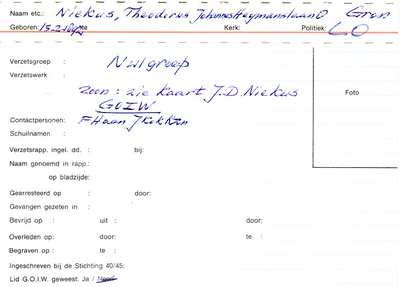 Naam etc.: Niekus, Theodorus Johannes Heymanslaan 0 Gron
Geboren: 15-2-1892 te Kerk: Politiek: LO
Verzetsgroep : Nulgroep
Verzetswerk :
zoon: zie kaart J.D. Niekus
GOIW
Foto
Contactpersonen: F Haan J Kokken
Schuilnamen :
Verzetsrapp. ingel. dd. : bij:
Naam genoemd in rapp.:
op bladzijde:
Gearresteerd op : door:
Gevangen gezeten in :
Bevrijd op : uit : door:
Overleden op: door: te :
Begraven op : te :
Ingeschreven bij de Stichting 40/45:
Lid G.O.I.W. geweest: Ja / Neen